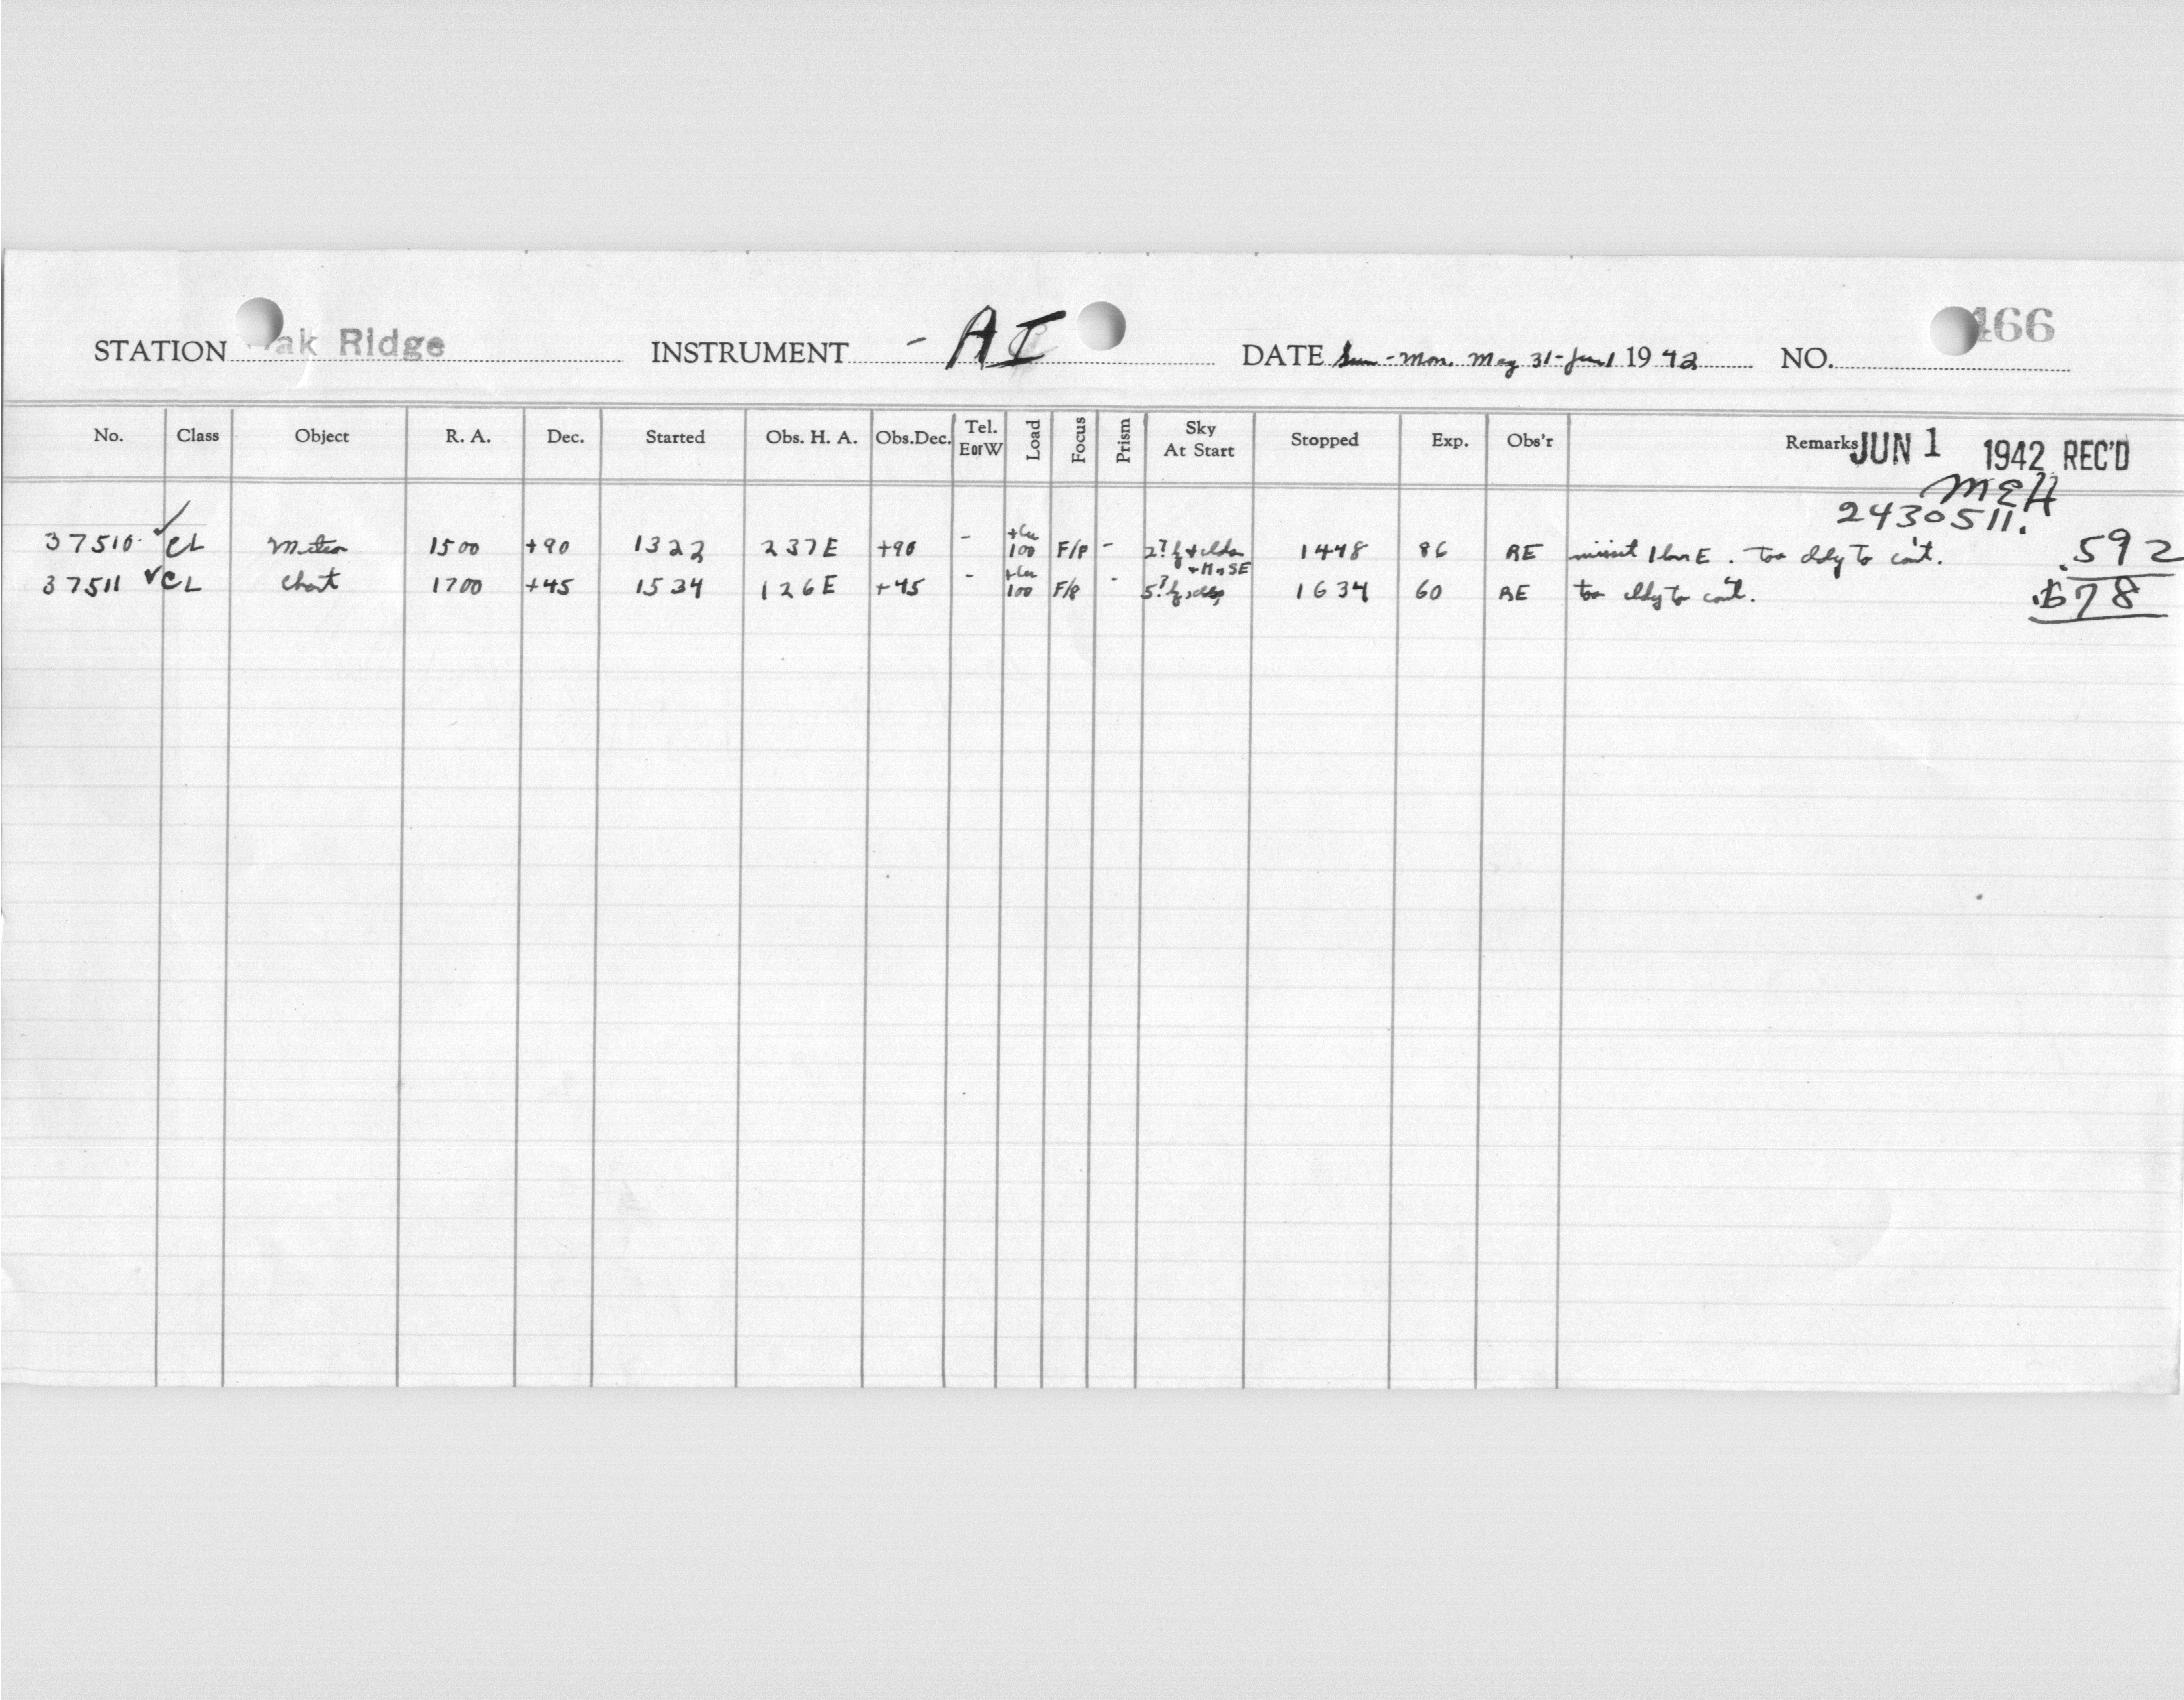 STATION ak Ridge INSTRUMENT - AI DATE Sun - Mon. May 31 - Jun 1 1942 NO. 466
No. Class Object R. A. Dec. Started Obs. H. A. Obs.Dec. Tel. EorW Load Focus Prism Sky At Start Stopped Exp. Obs'r Remarks JUN 1 1942 REC'D
MEH
2430511.
37510 ✓ CL Meteor 1500 +90 1322 237E +90 - 100 F/P - 2? 1448 86 RE E. Too cldy to con't. .592
37511 ✓ CL Chart 1700 +45 1534 126E +45 - 100 F/P - 5? 1634 60 RE too cldy to con't. .678